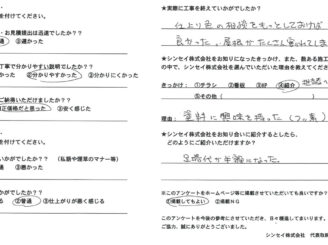 を付けてください。
・お見積提出は迅速でしたか？？
通 ③遅かった
て丁寧で分かりやすい説明でしたか？？
②分かりやすかった ③分かりにくかった
ご納得いただけましたか？？
正価格だと思った ③安く感じた
を付けてください。
いかがでしたか？ （私語や喫草のマナー等）
通 ③悪かった
いかがでしたか？？
②普通 ③仕上がりが悪く感じる
★実際に工事を終えていかがでしたか？
仕上り色の相談をもっとしておけば
良かった。屋根がたくさん
★シンセイ株式会社をお知りになったきっかけ、また、数ある施工
の中で、シンセイ株式会社を選んでいただいた理由を教えてください
きっかけ：①チラシ ②看板 ③HP ④紹介
⑤その他（
理由： 塗料に興味を持った（フッ素）
★シンセイ株式会社をお知り合いに紹介するとしたら、
どのようにご紹介いただけますか？
足場代が半額になった
※このアンケートをホームページ等に掲載させていただいても良いですか？
①掲載してもよい ②掲載NG
このアンケートを今後の参考にさせていただき、日々精進してまいります。
ご協力、誠にありがとうございました。
シンセイ株式会社 代表取